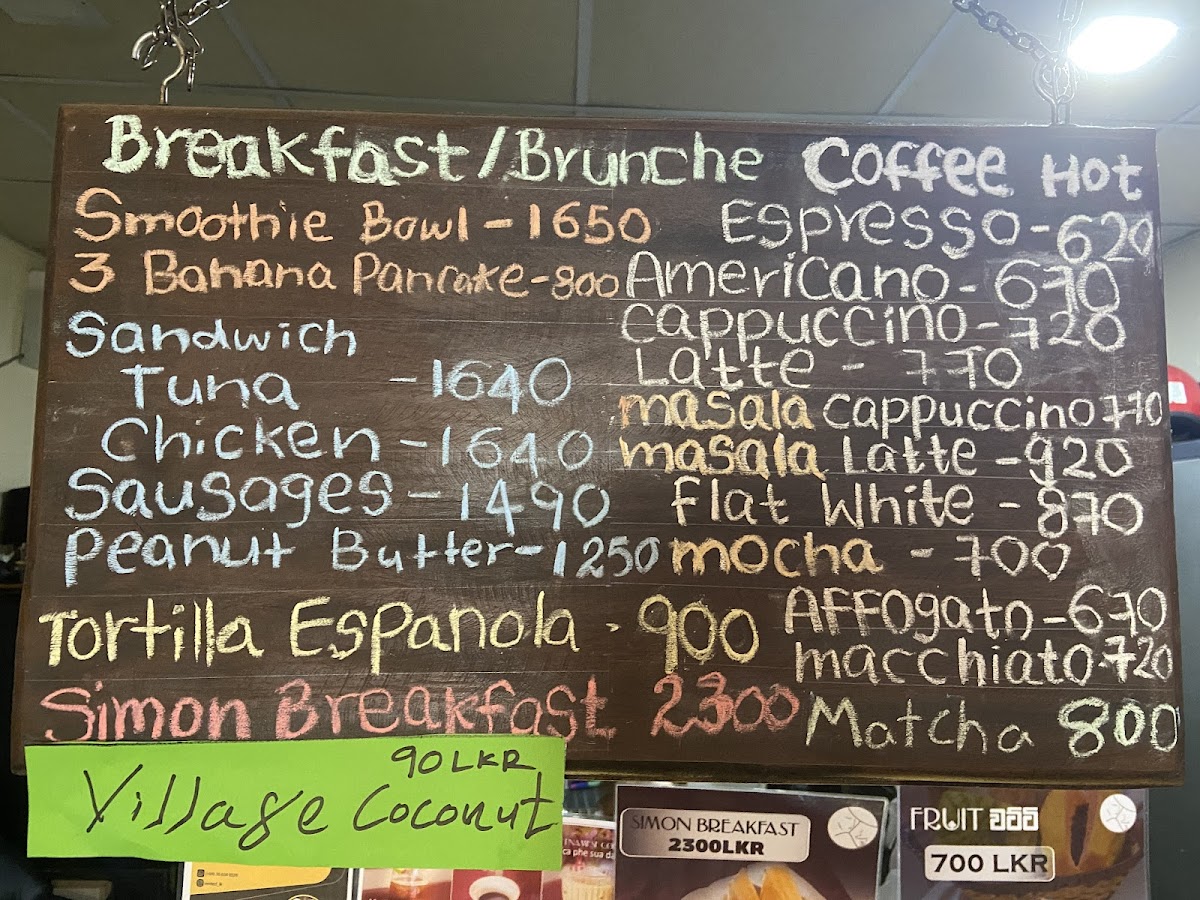 Breakfast/Brunche
Smoothie Bowl - 1650
3 Banana Pancake - 800
Sandwich
Tuna - 1640
Chicken - 1640
Sausages - 1490
Peanut Butter - 1250
Tortilla Espanola - 900
Simon Breakfast 2300
Coffee Hot
Espresso - 620
Americano - 670
Cappuccino - 720
Latte - 770
masala cappuccino 770
masala Latte - 920
Flat White - 870
mocha - 700
Affogato - 670
macchiato - 720
Matcha 800
90 LKR
Village Coconut
SIMON BREAKFAST
2300LKR
FRUIT වට්ටි
700 LKR